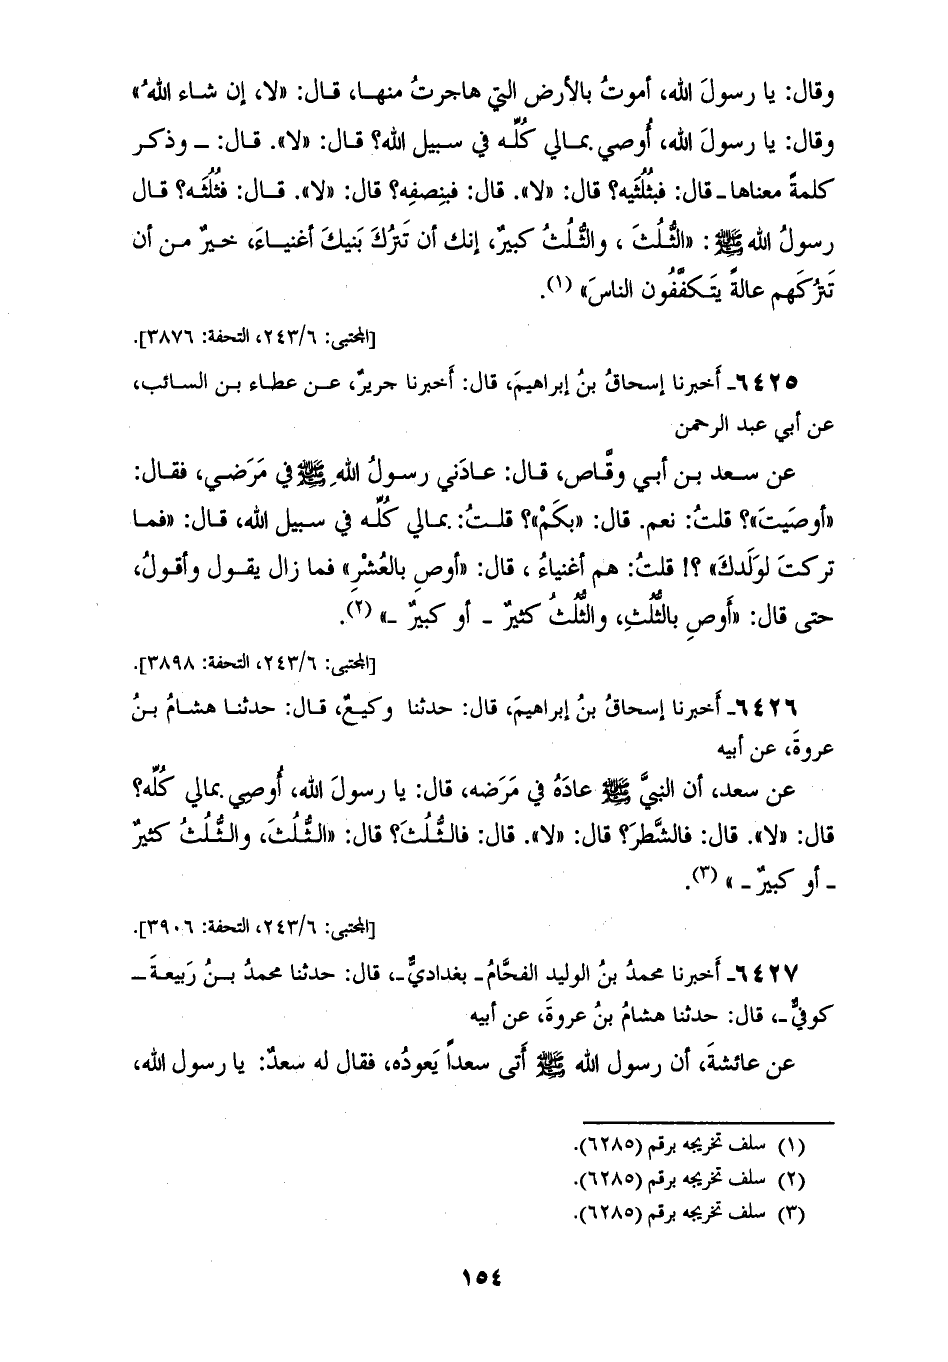 وقال: يا رسولَ الله، أموتُ بالأرض التي هاجرتُ منهـا، قـال: «لا، إن شاء اللهُ»
وقال: يا رسولَ الله، أُوصي بمـالي كُلِّه في سبيل الله؟ قـال: «لا». قـال: ــ وذكـر
كلمةً معناها ـ قال: فبثُلُثَيه؟ قال: «لا». قال: فبنِصفِه؟ قال: «لا». قـال: فثُلُثَـه؟ قال
رسولُ الله ﷺ: «الثُّلُثَ ، والثُّلُثُ كبيرٌ، إنك أن تَترُكَ بَنيكَ أغنيـاءَ، خيرٌ مـن أن
تَترُكَهم عالةً يَتَكفَّفُون الناسَ» (١).
[المجتبى: ٢٤٣/٦، التحفة: ٣٨٧٦].
٦٤٢٥ـ أَخبرنا إسحاقُ بنُ إبراهيمَ، قال: أَخبرنا جريرٌ، عـن عطـاء بـن السـائب،
عن أبي عبد الرحمن
عن سـعد بـن أبـي وقَّـاص، قـال: عـادَني رسـولُ الله ﷺ في مَرَضـي، فقـال:
«أوصَيتَ»؟ قلتُ: نعم. قال: «بكَمْ»؟ قلتُ: بمـالي كُلِّـه في سـبيل الله، قـال: «فمـا
تركتَ لوَلَدكَ» ؟! قلتُ: هم أغنياءُ ، قال: «أوصِ بالعُشْرِ» فما زال يقـول وأقـولُ،
حتى قال: «أَوصِ بالثُّلُثِ، والثُّلُثُ كثيرٌ ـ أو كبيرٌ ـ» (٢).
[المجتبى: ٢٤٣/٦، التحفة: ٣٨٩٨].
٦٤٢٦ـ أَخبرنا إسحاقُ بنُ إبراهيمَ، قال: حدثنا وكيـعٌ، قـال: حدثنـا هشـامُ بـنُ
عروةَ، عن أبيه
عن سعد، أن النبيَّ ﷺ عادَهُ في مَرَضه، قال: يا رسولَ الله، أُوصِي بمالي كُلِّه؟
قال: «لا». قال: فالشَّطرَ؟ قال: «لا». قال: فالثُّلُثَ؟ قال: «الثُّلُثَ، والثُّلُثُ كثيرٌ
ـ أو كبيرٌ ـ » (٣).
[المجتبى: ٢٤٣/٦، التحفة: ٣٩٠٦].
٦٤٢٧ـ أَخبرنا محمدُ بنُ الوليد الفحَّامُ ـ بغداديٌّ ـ، قال: حدثنا محمدُ بـنُ رَبيعةَ ــ
كوفيٌّ ـ، قال: حدثنا هشامُ بنُ عروةَ، عن أبيه
عن عائشةَ، أن رسول الله ﷺ أَتى سعداً يَعودُه، فقال له سعدٌ: يا رسول الله،
(١) سلف تخريجه برقم (٦٢٨٥).
(٢) سلف تخريجه برقم (٦٢٨٥).
(٣) سلف تخريجه برقم (٦٢٨٥).
١٥٤